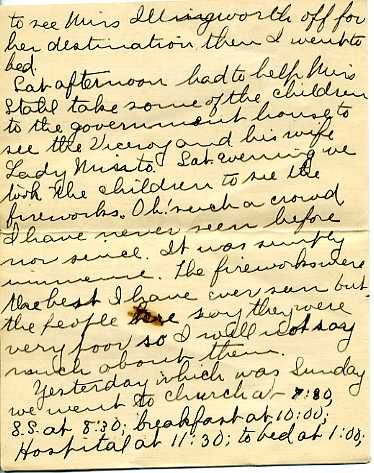 to see Miss Illingworth off for
her destination then I went to
bed.
Sat. afternoon had to help Miss
Stahl take some of the children
to the government house to
see the Viceroy and his wife
Lady Minto. Sat. evening we
took the children to see the
fireworks. Oh! such a crowd
I have never seen before
nor since. It was simply
immense. The fireworks were
the best I have ever seen but
the people here say they were
very poor so I will not say
much about them.
Yesterday which was Sunday
we went to church at 7:30,
S.S. at 8:30; breakfast at 10:00;
Hospital at 11:30; to bed at 1:00;